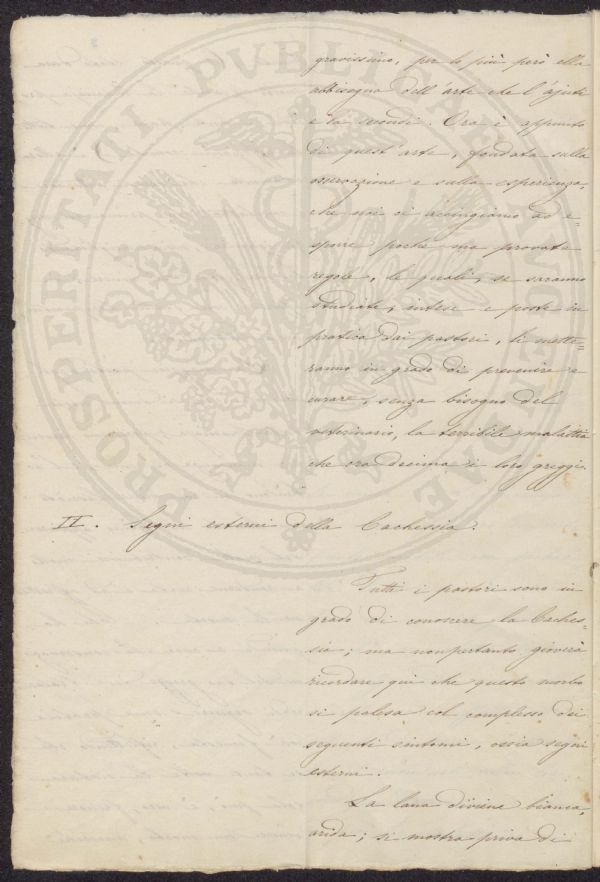 gravissimo, per lo più però ella
abbisogna dell'arte che l'ajuti
e la secondi. Ora è appunto
di quest'arte, fondata sulla
osservazione e sulla esperienza,
che noi ci accingiamo ad e=
sporre poche ma provate
regole, le quali, se saranno
studiate, intese e poste in
pratica dai pastori, li mette=
ranno in grado di prevenire e
curare, senza bisogno del
veterinario, la terribile malattia
che ora decima i loro greggi.
II. Segni esterni della Cachessia.
Tutti i pastori sono in
grado di conoscere la Caches=
sia; ma nonpertanto gioverà
ricordare qui che questo morbo
si palesa col complesso dei
seguenti sintomi, ossia segni
esterni.
La lana diviene bianca,
arida; si mostra priva di
PROSPERITATI PUBLICAE AUGENDAE